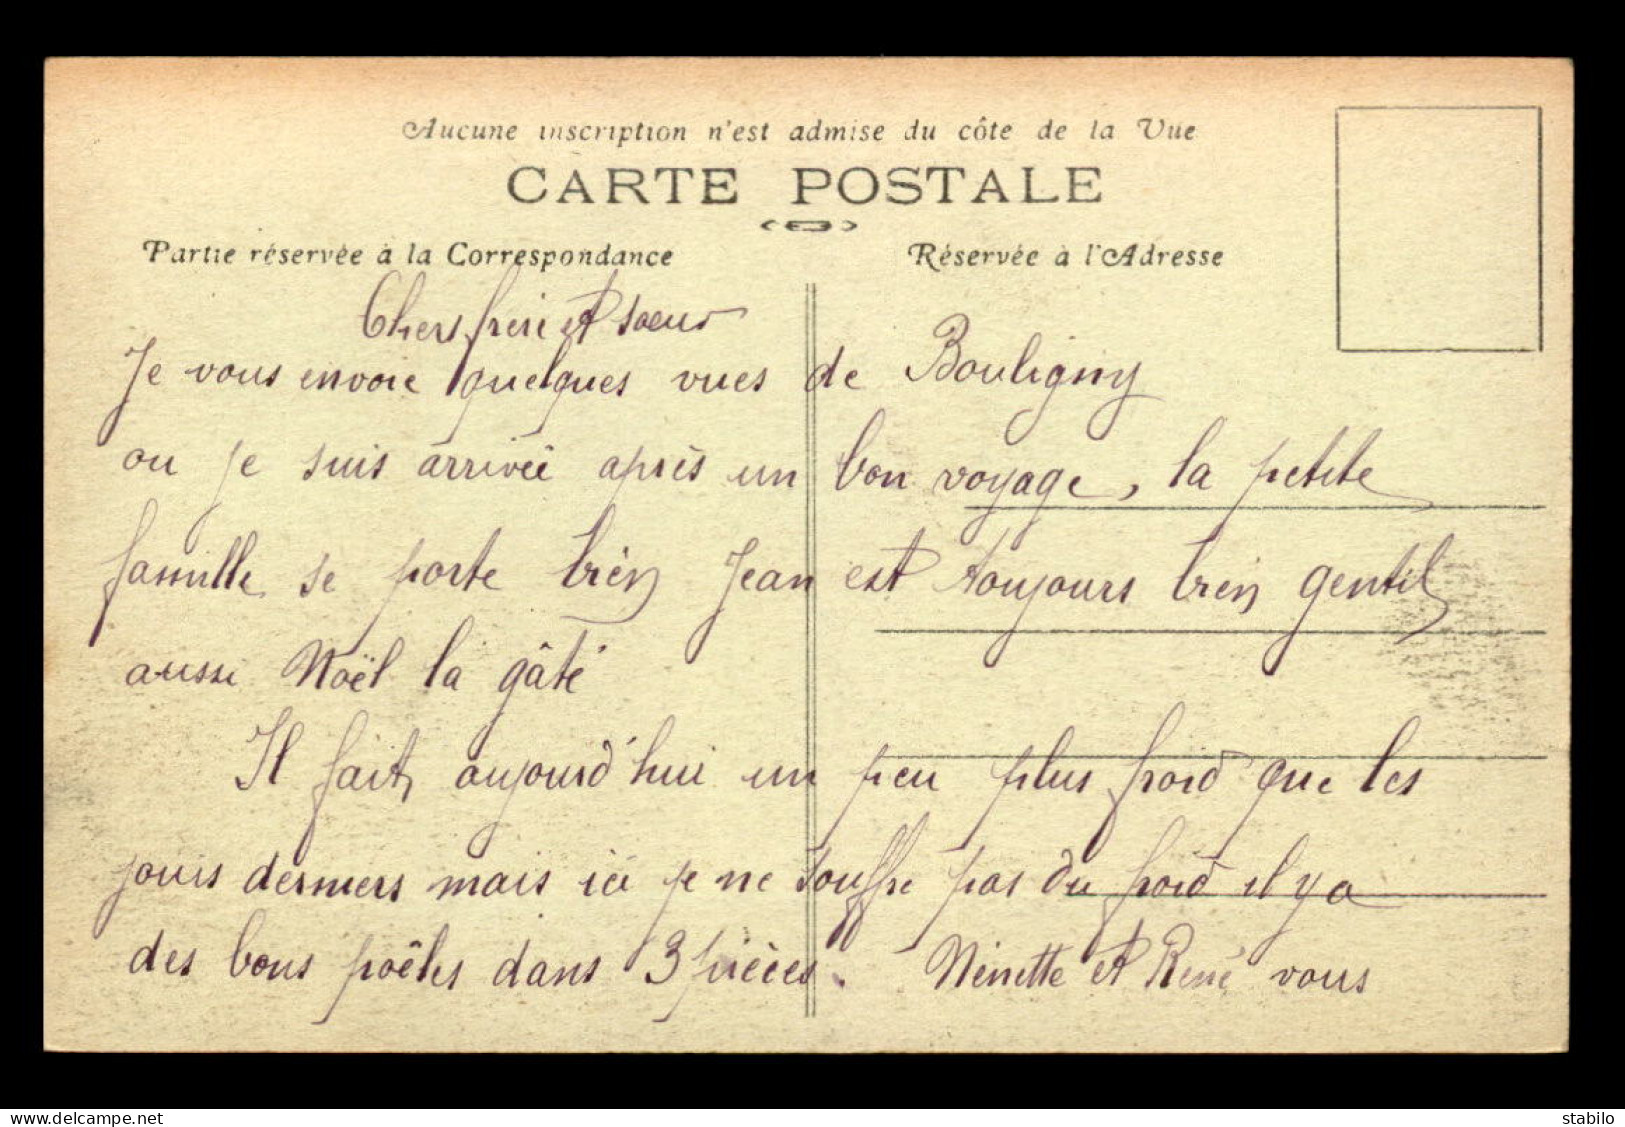 Aucune inscription n'est admise du côte de la Vue
CARTE POSTALE
Partie réservée à la Correspondance
Réservée à l'Adresse
Chers frère et soeur
Je vous envoie quelques vues de Bouligny
ou je suis arrivée après un bon voyage, la petite
famille se porte bien Jean est toujours bien gentil
aussi Noël la gâté
Il fait aujourd'hui un peu plus froid que les
jours derniers mais ici je ne souffre pas du froid il y a
des bons poêles dans 3 pièces. Ninette et René vous
delcampe.net
stabilo